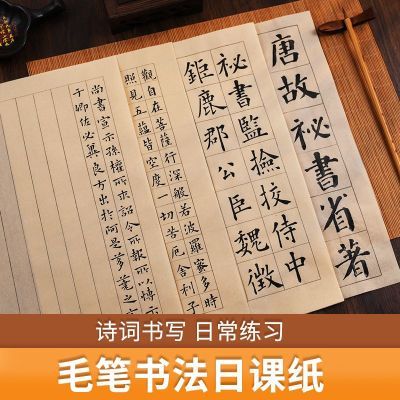 唐故祕書省著
祕書監撿挍侍中
鉅鹿郡公臣魏徵
觀自在菩薩行深般若波羅蜜多時
照見五蘊皆空度一切苦厄舍利子
尚書宣示孫權所求詔令所報所以博示
于卿佐必冀良方出於阿是芻蕘之
诗词书写 日常练习
毛笔书法日课纸